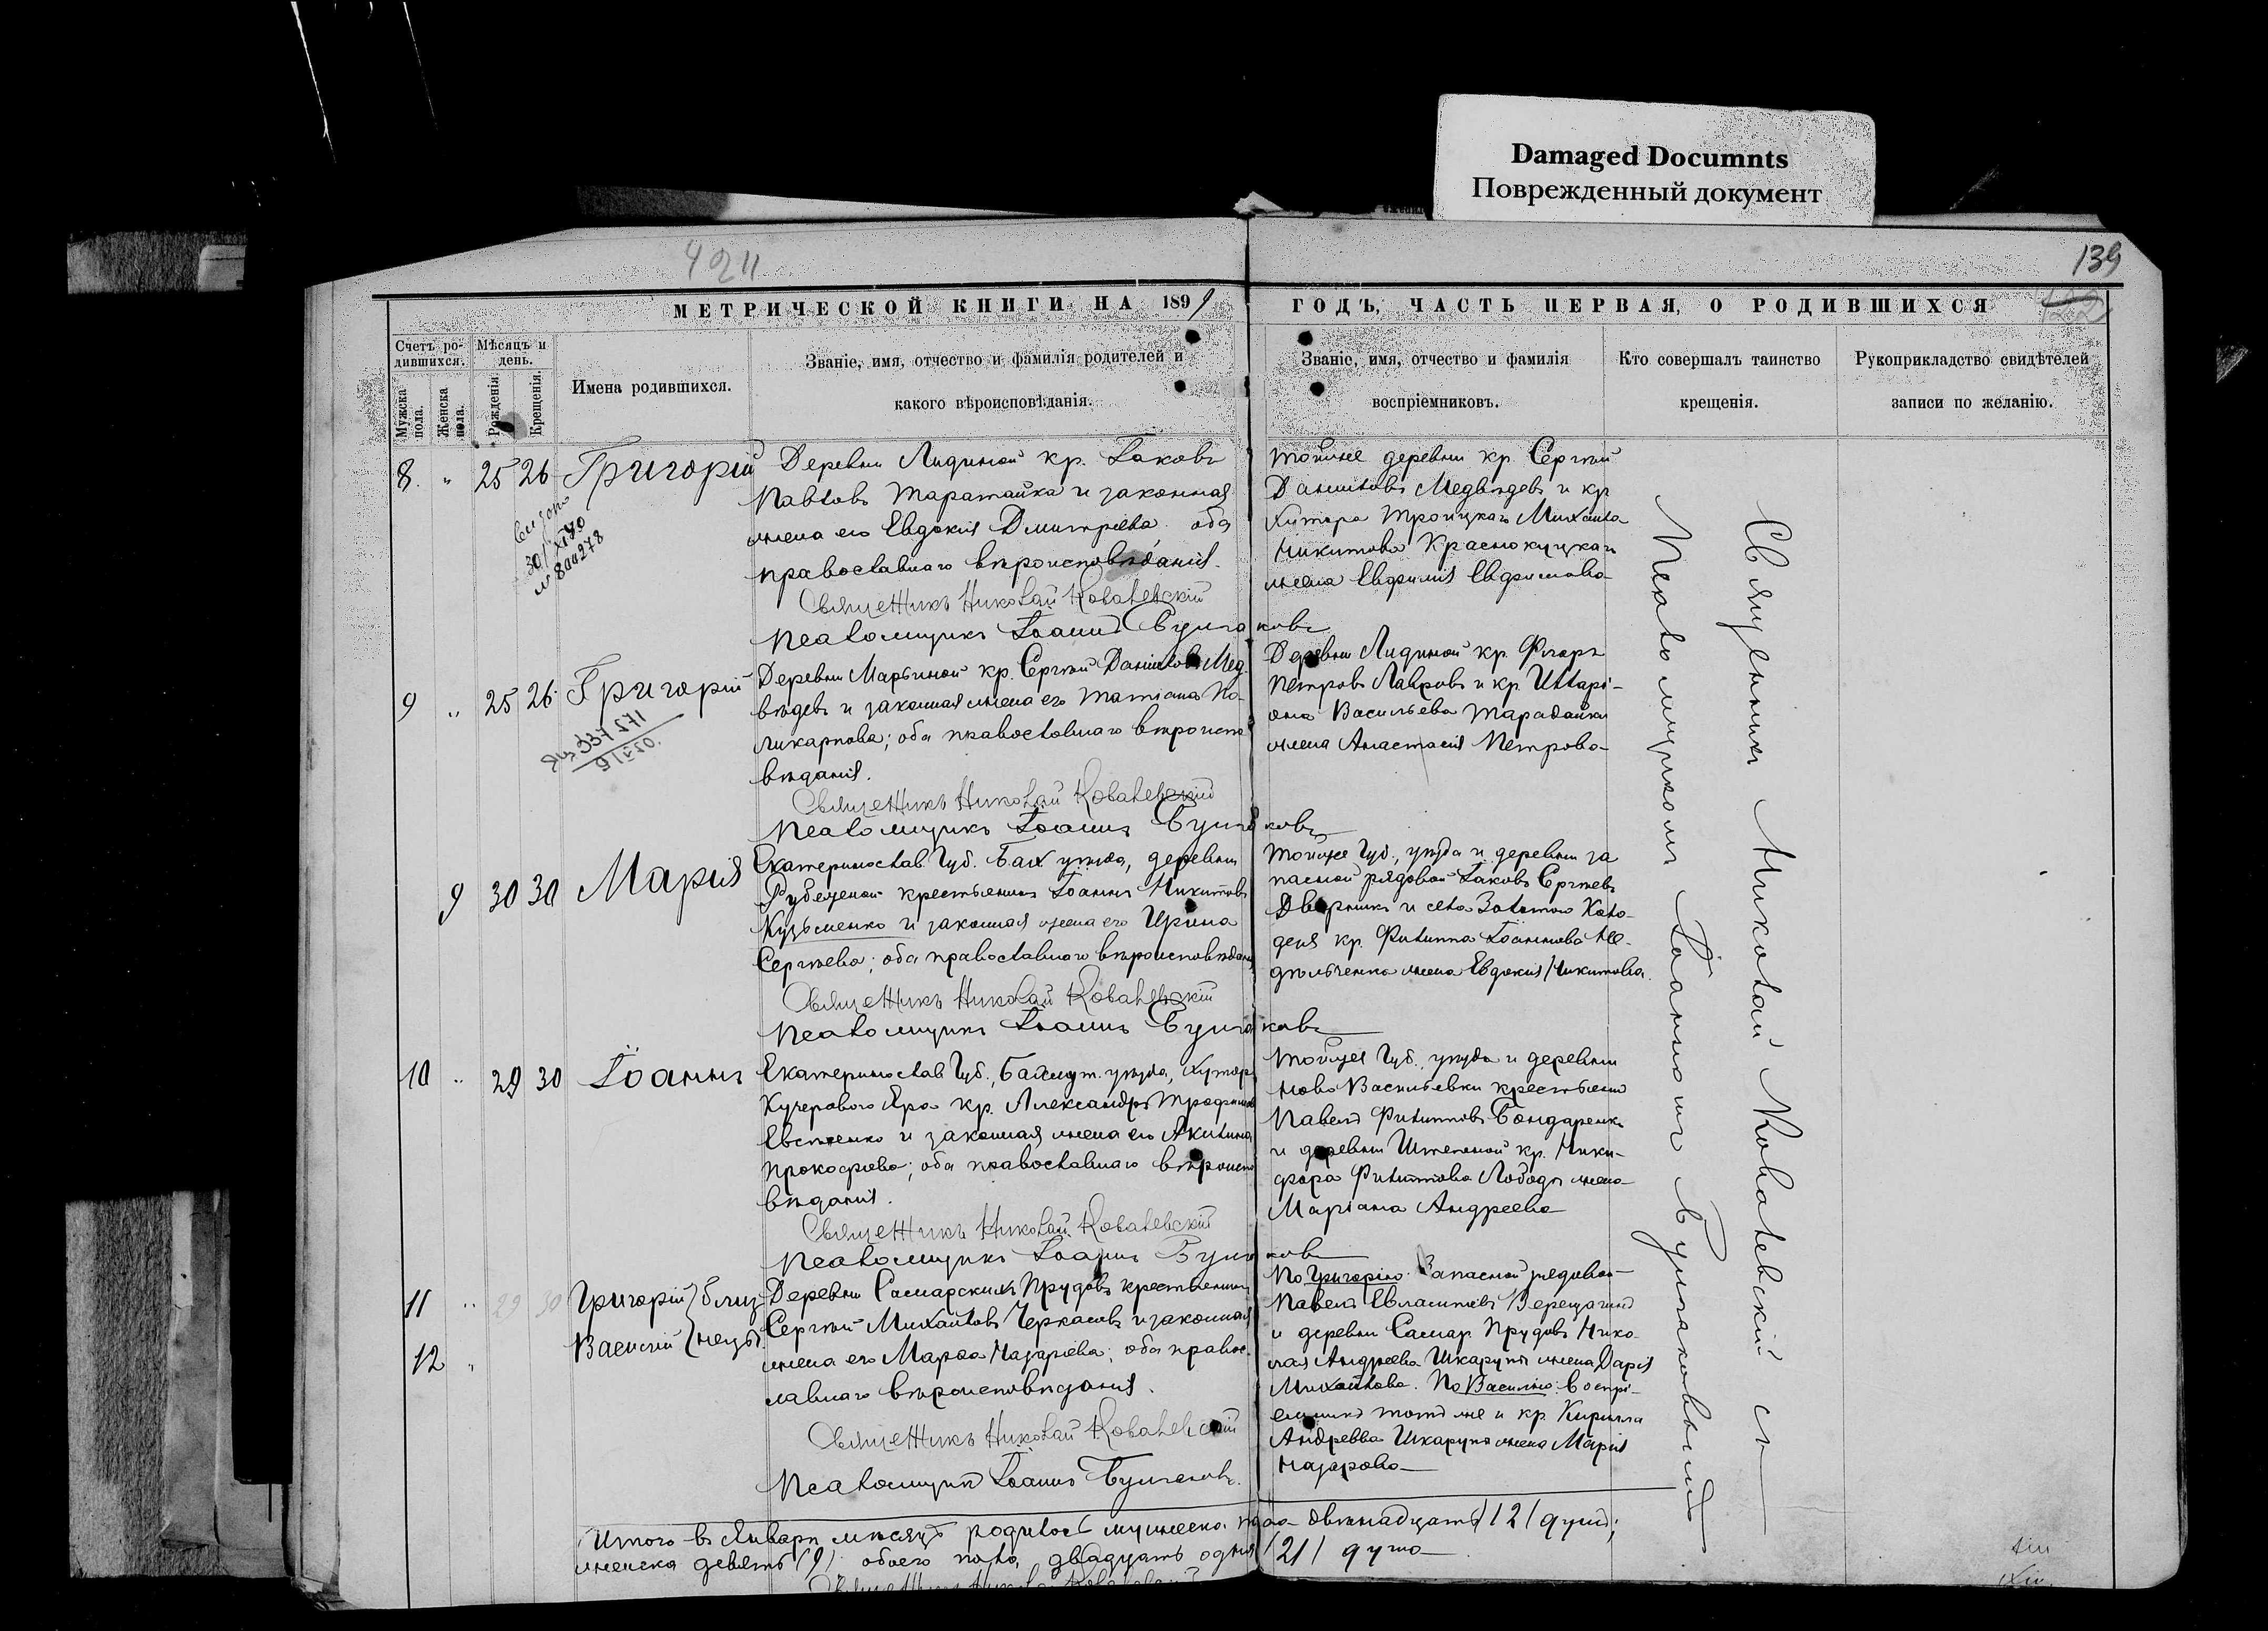 Damaged Documnts
Поврежденный документ
4211
139
122
МЕТРИЧЕСКОЙ КНИГИ НА 1899
ГОДЪ, ЧАСТЬ ПЕРВАЯ, О РОДИВШИХСЯ
Счетъ ро-
дившихся.
Мужска
пола.
Женска
пола.
Мѣсяцъ и
день.
Рожденія.
Крещенія.
Имена родившихся.
Званіе, имя, отчество и фамилія родителей и
какого вѣроисповѣданія.
Званіе, имя, отчество и фамилія
воспріемниковъ.
Кто совершалъ таинство
крещенія.
Рукоприкладство свидѣтелей
записи по желанію.
8 " 25 26 Григорій
30/XI 40
№ 844278
Деревни Лидиной кр. Іаковъ
Павловъ Таратайка и законная
жена его Евдокія Димитріева оба
православнаго вѣроисповѣданія.
Священникъ Николай Ковалевскій
Псаломщикъ Іоаннъ Булгаковъ
тойже деревни кр. Сергѣй
Даниловъ Медвѣдевъ и кр.
хутора Троицкаго Михаила
Никитова Краснокуцкаго
жена Евфимія Евфимова
9 " 25 26 Григорій
337271
Деревни Марьиной кр. Сергѣй Даниловъ Мед-
вѣдевъ и законная жена его Татіана По-
ликарпова; оба православнаго вѣроиспо-
вѣданія.
Священникъ Николай Ковалевскій
Псаломщикъ Іоаннъ Булгаковъ
Деревни Лидиной кр. Флоръ
Петровъ Лавровъ и кр. Иллари-
она Васильева Тарадайки
жена Анастасія Петрова
9 30 30 Марія
Екатеринослав. Губ. Бах. уѣзда, деревни
крестьянинъ Іоаннъ Никитовъ
Кузьменко и законная жена его Ирина
Сергѣева; оба православнаго вѣроисповѣданія
Священникъ Николай Ковалевскій
Псаломщикъ Іоаннъ Булгаковъ
тойже Губ., уѣзда и деревни за
пасной рядовой Іаковъ Сергѣевъ
Дворникъ и села Золотого Коло-
дезя кр. Филиппа Іоаннова Не-
дѣльченка жена Евдокія Никитова.
10 " 29 30 Іоаннъ
Екатеринослав. Губ., Бахмут. уѣзда, хутора
Кучерового Яра кр. Александръ Трофимовъ
Евсѣенко и законная жена его Акилина
Прокофіева; оба православнаго вѣроиспо-
вѣданія.
Священникъ Николай Ковалевскій
Псаломщикъ Іоаннъ Булгаковъ
тойже Губ., уѣзда и деревни
Ново Васильевки крестьянинъ
Павелъ Филипповъ Бондаренко
и деревни Степной кр. Ники-
фора Филиппова Лободы жена
Маріана Андреева
11 " 29 30 Григорій } близ
12 " Василій } нецы.
Деревни Самарскихъ Прудовъ крестьянинъ
Сергѣй Михайловъ Черкасовъ и законная
жена его Марѳа Назаріева; оба правос-
лавнаго вѣроисповѣданія.
Священникъ Николай Ковалевскій
Псаломщикъ Іоаннъ Булгаковъ.
По Григорію: Запасной рядовой
Павелъ Верещагинъ
и деревни Самар. Прудовъ Нико-
лая Андреева Шкарупы жена Дарія
Михайлова. По Василію: воспрі-
емникъ тотъ же и кр. Кирилла
Андреева Шкарупы жена Марія
Назарова
Священникъ Николай Ковалевскій съ
Псаломщикомъ Іоанномъ Булгаковымъ
Итого въ Январѣ мѣсяцѣ родилось мужеска пола двѣнадцать /12/ душъ;
женска девять /9/; обоего пола двадцать одна /21/ душа
Священникъ Николай Ковалевскій